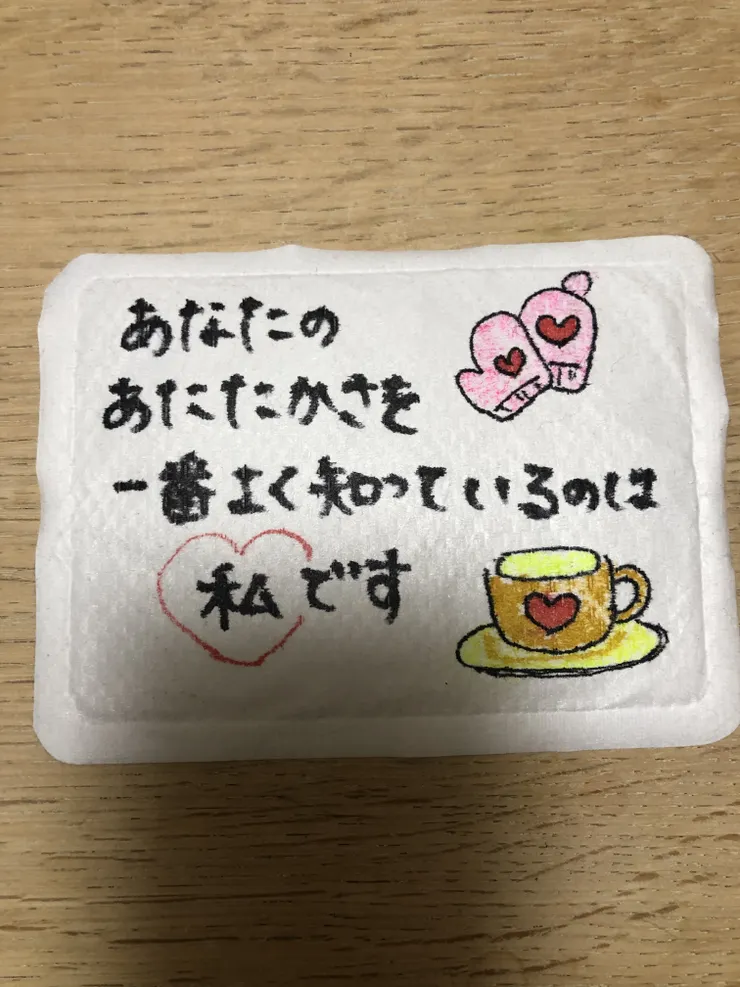 あなたの
あたたかさを
一番よく知っているのは
私です